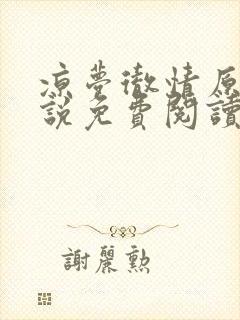 凉夢徹情原
說免費閱讀
謝麗勲